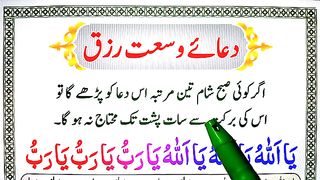 دعائے وسعت رزق
اگر کوئی صبح شام تین مرتبہ اس دعا کو پڑھے گا تو
اس کی برکت سے سات پشت تک محتاج نہ ہو گا۔
یَا اَللهُ یَا اَللهُ یَا اَللهُ یَا رَبُّ یَا رَبُّ یَا رَبُّ